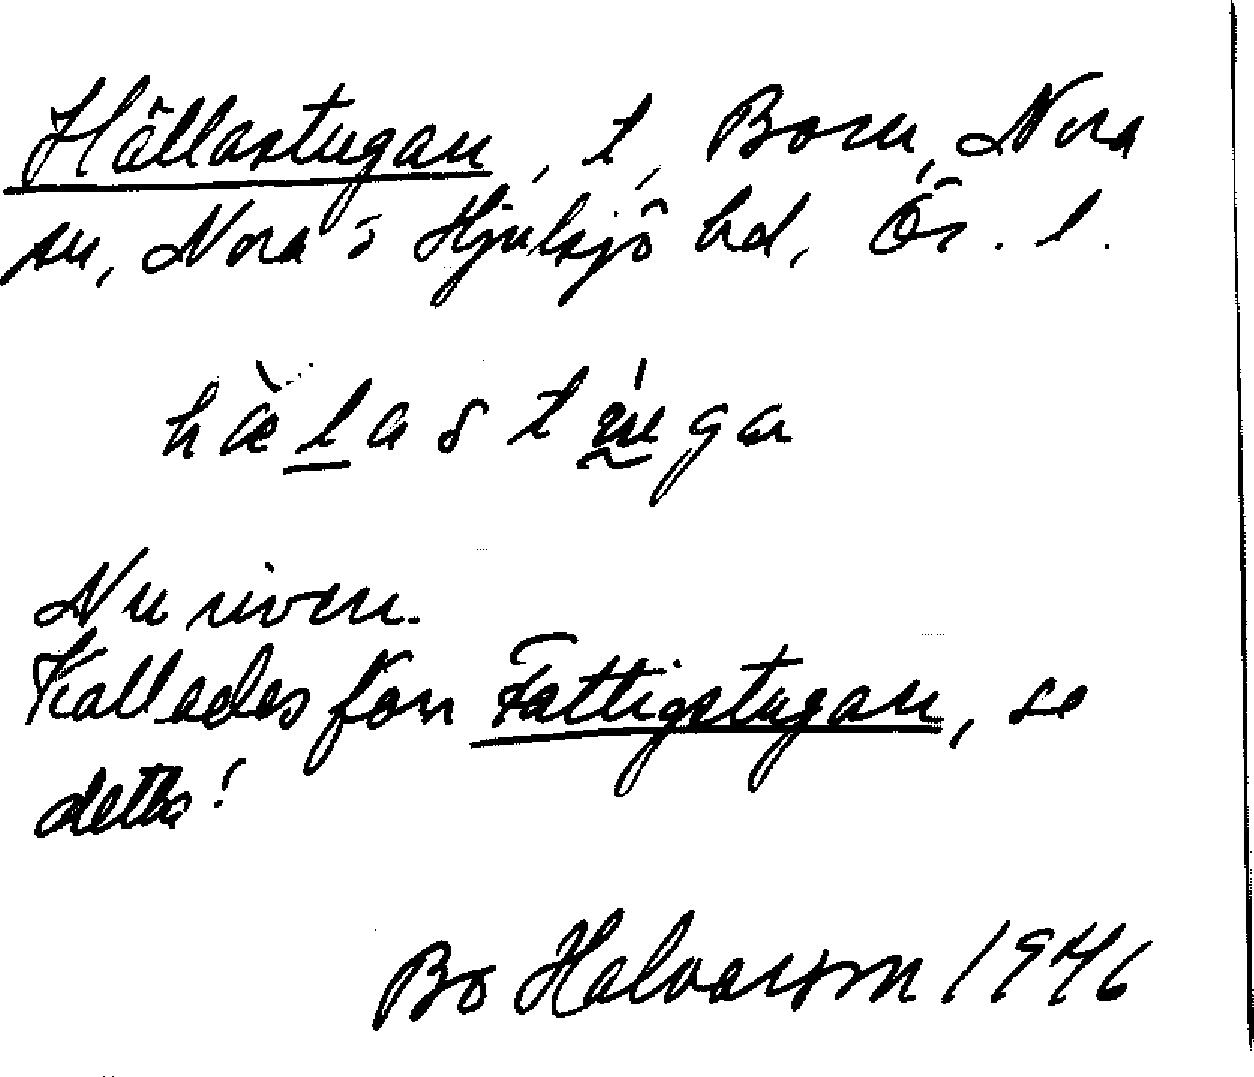 Hällastugan, t, Born, Nora
sn, Nora o Hjulsjö hd, Ör. l.
hälastuga
Nu riven.
Kallades förr Fattigstugan, se
detta!
Bo Halvarson 1946